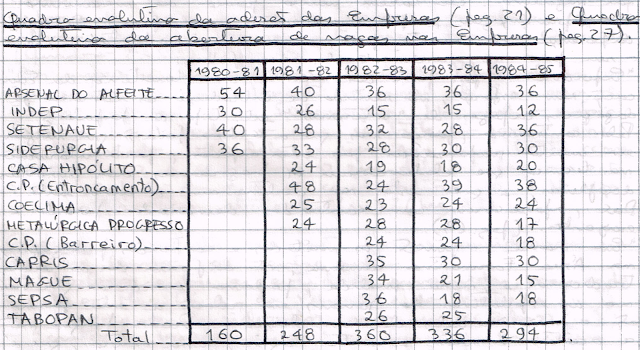 Quadro evolutivo da adesão das Empresas (pag. 21) e Quadro
evolutivo da abertura de vagas nas Empresas (pag. 27).
1980-81 1981-82 1982-83 1983-84 1984-85
ARSENAL DO ALFEITE 54 40 36 36 36
INDEP 30 26 15 15 12
SETENAVE 40 28 32 28 36
SIDERURGIA 36 33 28 30 30
CASA HIPÓLITO 24 19 18 20
C.P. (Entroncamento) 48 24 39 38
COELIMA 25 23 24 24
METALÚRGICA PROGRESSO 24 28 28 17
C.P. (Barreiro) 24 24 18
CAPRIS 35 30 30
MAGUE 34 21 15
SEPSA 36 18 18
TABOPAN 26 25
Total 160 248 360 336 294.